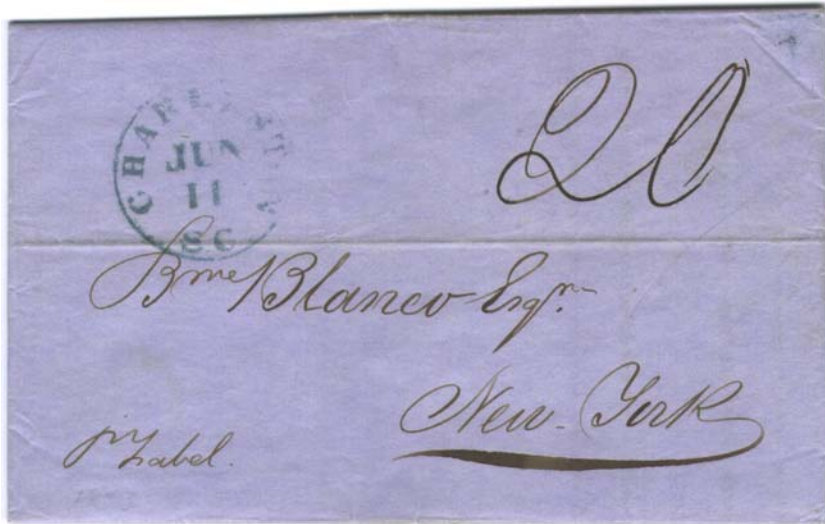 20
CHARLESTON
JUN
11
SC
Bme Blanco Esqr.
New-York
pr Isabel.